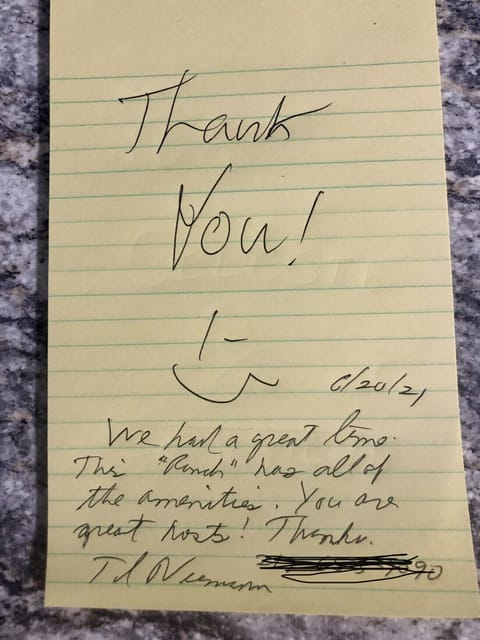 Thank
You!
6/20/21
We had a great time.
This "Ranch" has all of
the amenities. You are
great hosts! Thanks.
Neumann